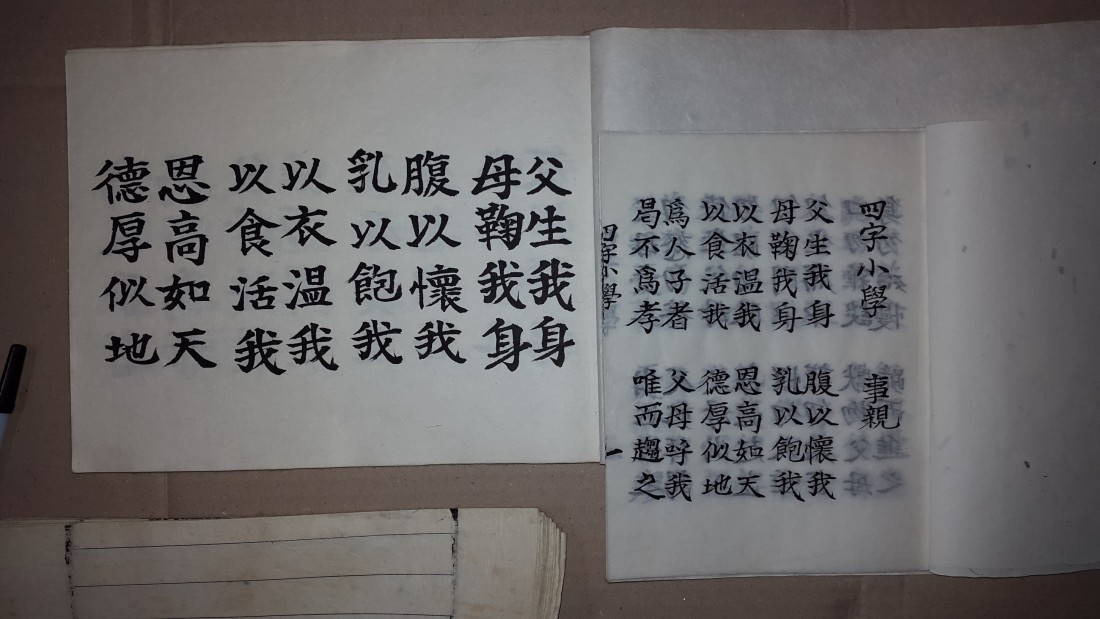 父生我身
母鞠我身
腹以懷我
乳以飽我
以衣温我
以食活我
恩高如天
德厚似地
四字小學
事親
父生我身
腹以懷我
母鞠我身
乳以飽我
以衣温我
恩高如天
以食活我
德厚似地
爲人子者
父母呼我
曷不爲孝
唯而趨之
四字小學
一